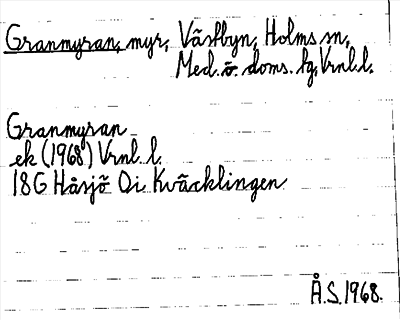 Granmyran, myr, Västbyn, Holms sn,
Med. ö. doms. tg, Vrnl. l.
Granmyran
ek (1968) Vrnl. l.
18G Håsjö Oi Kväcklingen
Å.S. 1968.